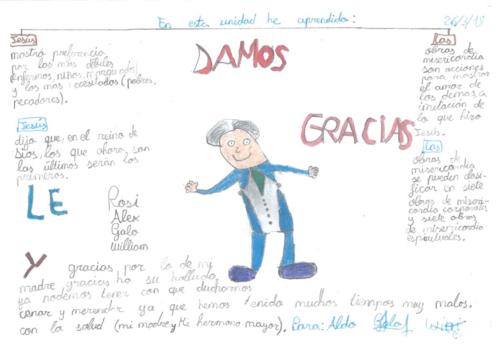 En esta unidad he aprendido:
26/3/18
Jesús
mostró preferencia
por los más débiles
enfermos, niños,
y los más necesitados (pobres,
pecadores).
Jesús
dijo que, en el reino de
Dios, los que ahora son
los últimos serán los
primeros.
DAMOS
GRACIAS
Las
obras de
misericordia
son acciones
para mostrar
el amor de
los demás, a
imitación de
lo que hizo
Jesús.
Las
obras de
misericordia
se pueden clasi-
ficar en siete
obras de miseri-
cordia corporales
y siete obras
de misericordia
espirituales.
LE
Rosi
Alex
Galo
William
Y gracias por lo de mi
madre gracias ha su
ya podemos tener con que ducharnos
cenar y merendar ya que hemos tenido muchos tiempos muy malos.
con la salud (mi madre y Mi hermano mayor). Para: Aldo